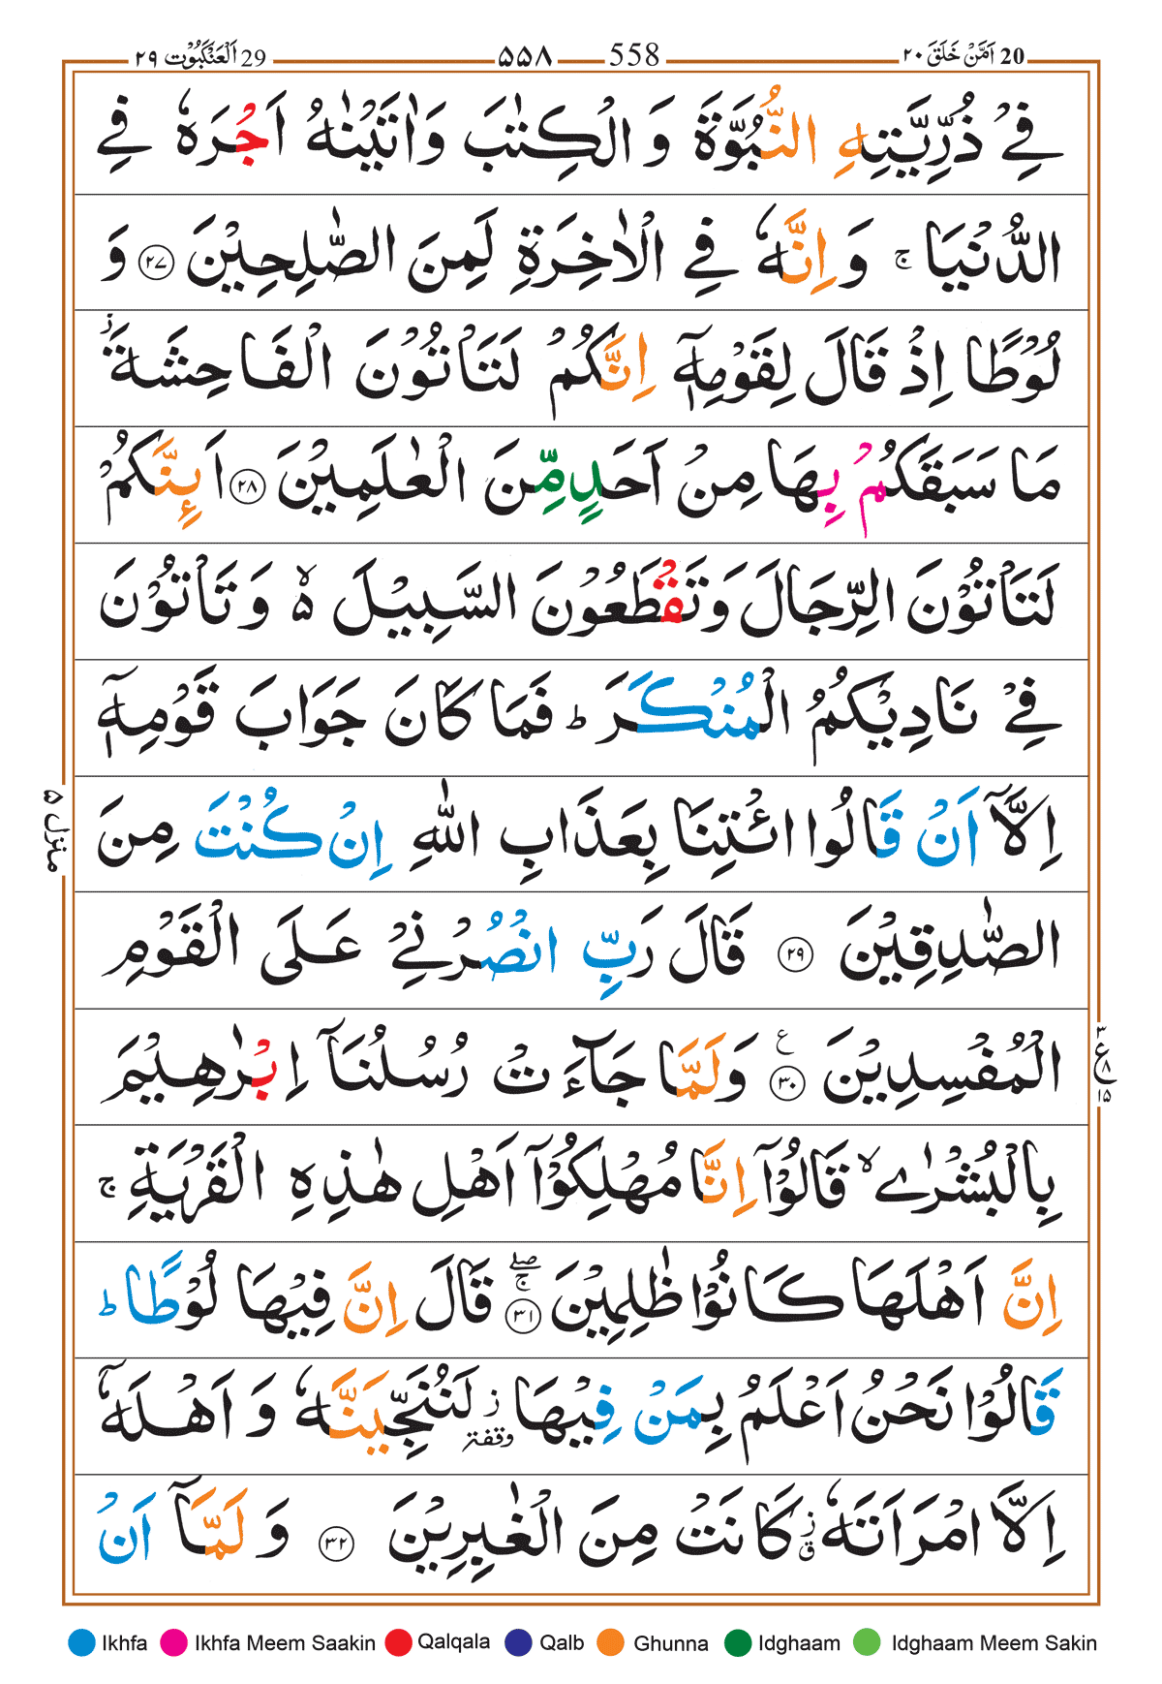 20 اَمَّنْ خَلَقَ ٢٠
558 ۵۵۸
29 اَلْعَنْكَبُوْت ٢٩
فِيْ ذُرِّيَّتِهِ النُّبُوَّةَ وَ الْكِتٰبَ وَاٰتَيْنٰهُ اَجْرَهٗ فِي
الدُّنْيَا ۚ وَاِنَّهٗ فِي الْاٰخِرَةِ لَمِنَ الصّٰلِحِيْنَ ٢٧ وَ
لُوْطًا اِذْ قَالَ لِقَوْمِهٖٓ اِنَّكُمْ لَتَاْتُوْنَ الْفَاحِشَةَ ز
مَا سَبَقَكُمْ بِهَا مِنْ اَحَدٍ مِّنَ الْعٰلَمِيْنَ ٢٨ اَىِٕنَّكُمْ
لَتَاْتُوْنَ الرِّجَالَ وَتَقْطَعُوْنَ السَّبِيْلَ ۙ۵ وَ تَاْتُوْنَ
فِيْ نَادِيْكُمُ الْمُنْكَرَ ؕ فَمَا كَانَ جَوَابَ قَوْمِهٖٓ
اِلَّآ اَنْ قَالُوا ائْتِنَا بِعَذَابِ اللّٰهِ اِنْ كُنْتَ مِنَ
منزل ۵
الصّٰدِقِيْنَ ٢٩ قَالَ رَبِّ انْصُرْنِيْ عَلَى الْقَوْمِ
الْمُفْسِدِيْنَ ع ٣٠ وَلَمَّا جَآءَتْ رُسُلُنَآ اِبْرٰهِيْمَ
٣ ع ١۵
بِالْبُشْرٰى ۙ قَالُوْٓا اِنَّا مُهْلِكُوْٓا اَهْلِ هٰذِهِ الْقَرْيَةِ ۚ
اِنَّ اَهْلَهَا كَانُوْا ظٰلِمِيْنَ ٣١ صلے ج قَالَ اِنَّ فِيْهَا لُوْطًا ؕ
قَالُوْا نَحْنُ اَعْلَمُ بِمَنْ فِيْهَا ز وقفة لَنُنَجِّيَنَّهٗ وَ اَهْلَهٗٓ
اِلَّا امْرَاَتَهٗ ز ق كَانَتْ مِنَ الْغٰبِرِيْنَ ٣٢ وَ لَمَّآ اَنْ
Ikhfa Ikhfa Meem Saakin Qalqala Qalb Ghunna Idghaam Idghaam Meem Sakin